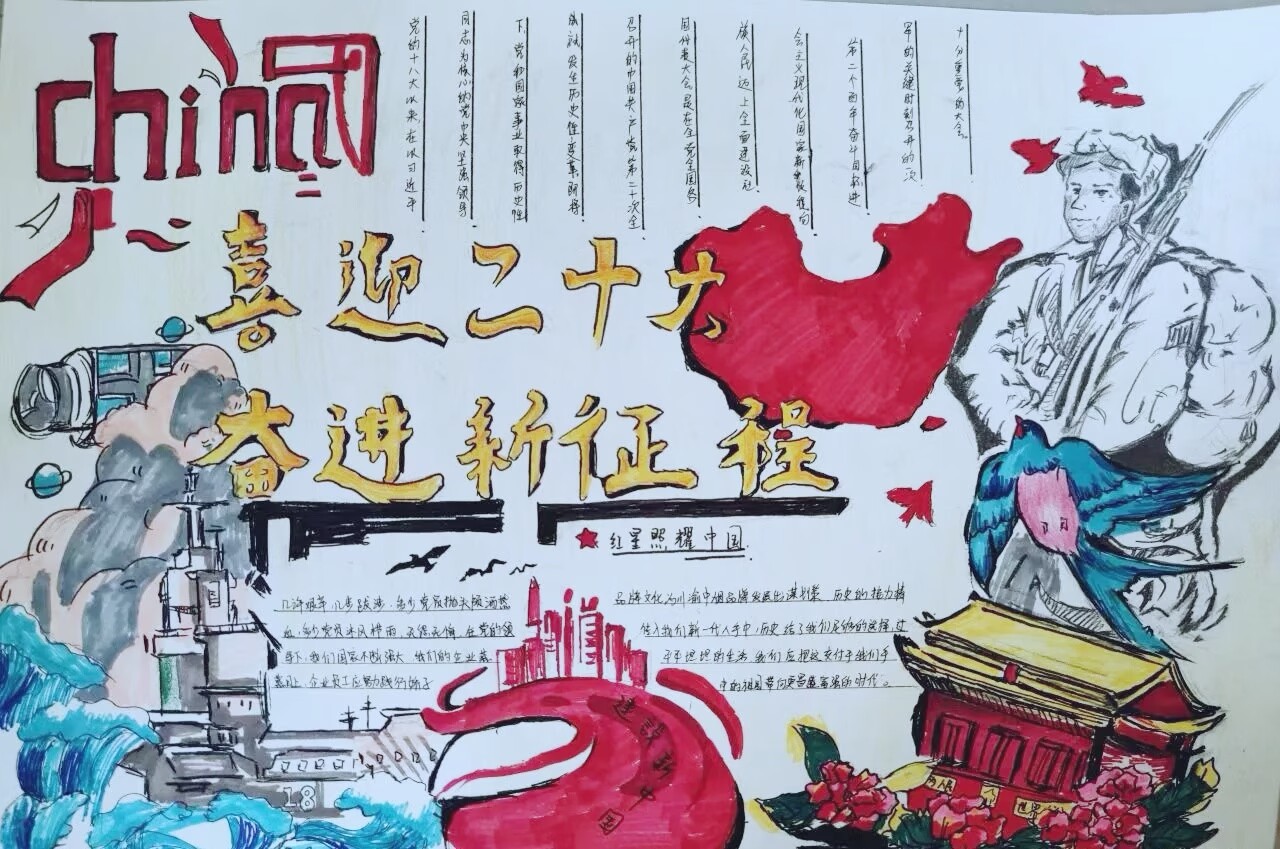 china
党的十八大以来,在以习近平
同志为核心的党中央坚强领导
下,党和国家事业取得历史性
成就、发生历史性变革,即将
召开的中国共产党第二十次全
国代表大会是在全党全国各
族人民迈上全面建设社
会主义现代化国家新征程向
第二个百年奋斗目标进
军的关键时刻召开的次
十分重要的大会。
喜迎二十大
奋进新征程
红星照耀中国
几许艰辛,几步跋涉,多少党员抛头颅洒热
血,多少党员沐风栉雨,无怨无悔,在党的领
导下,我们国家不断强大,我们的企业蒸
蒸日上,企业员工应努力践行娇子
品牌文化,为川渝中烟品牌发展出谋划策,历史的接力棒
传入我们新一代人手中,历史给了我们足够的选择,过
平平坦坦的生活,我们应把这交付于我们手
中的祖国带向更昌盛富强的时代。
建设新中国
18
为人民
世界